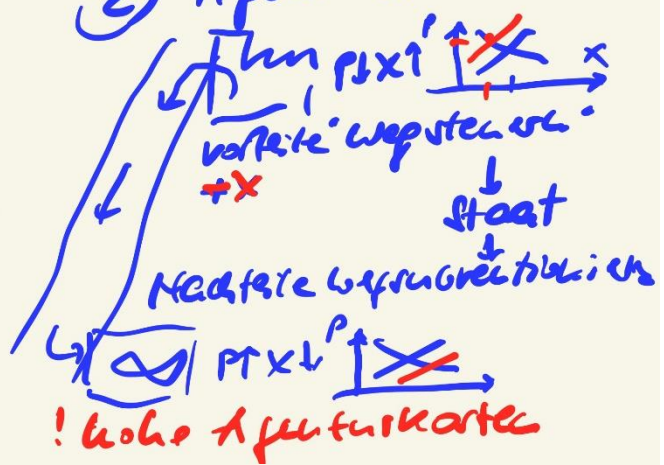 2)
P↓ X↑ P X
Vorteile "wegsteuern"
+X
↓
Staat
↓
Nachteile wegsubventionieren
P↑ X↓ P
! hohe Agenturkosten